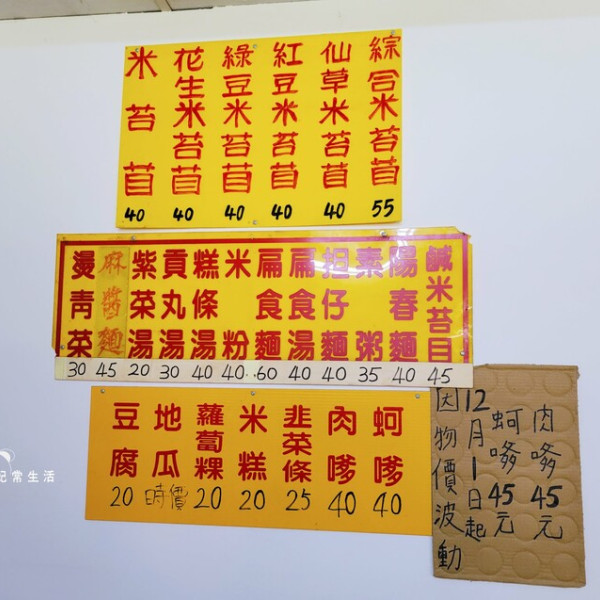 綜合米苔苜 55
仙草米苔苜 40
紅豆米苔苜 40
綠豆米苔苜 40
花生米苔苜 40
米苔苜 40
鹹米苔目 45
陽春麵 40
素粥 35
担仔麵 40
扁食湯 40
扁食麵 60
米粉 40
糕條湯 40
貢丸湯 30
紫菜湯 20
麻醬麵 45
燙青菜 30
蚵嗲 40
肉嗲 40
韭菜條 25
米糕 20
蘿蔔粿 20
地瓜 時價
豆腐 20
因物價波動
12月1日起
蚵嗲45元
肉嗲45元
記常生活